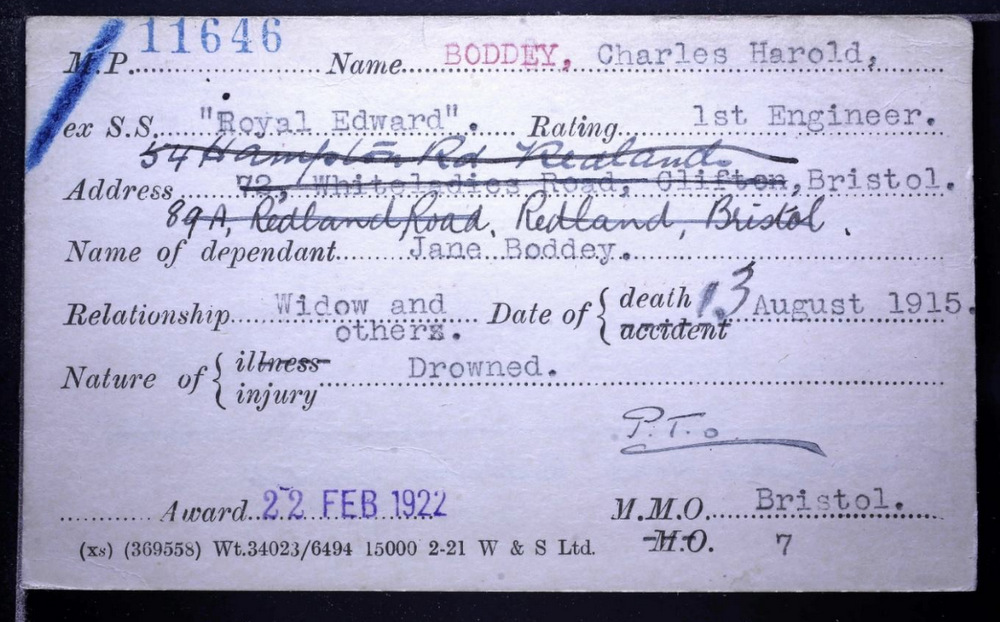 11646
M.P. Name BODDEY, Charles Harold,
ex S.S. "Royal Edward". Rating 1st Engineer.
54 Hampton Rd Redland
Address 72, Whiteladies Road, Clifton, Bristol.
89A, Redland Road, Redland, Bristol.
Name of dependant Jane Boddey.
Relationship Widow and others. Date of { death 13 August 1915.
accident
Nature of { illness Drowned.
injury
P.T.o.
Award 22 FEB 1922 M.M.O. Bristol.
(xs) (369558) Wt.34023/6494 15000 2-21 W & S Ltd. M.O. 7